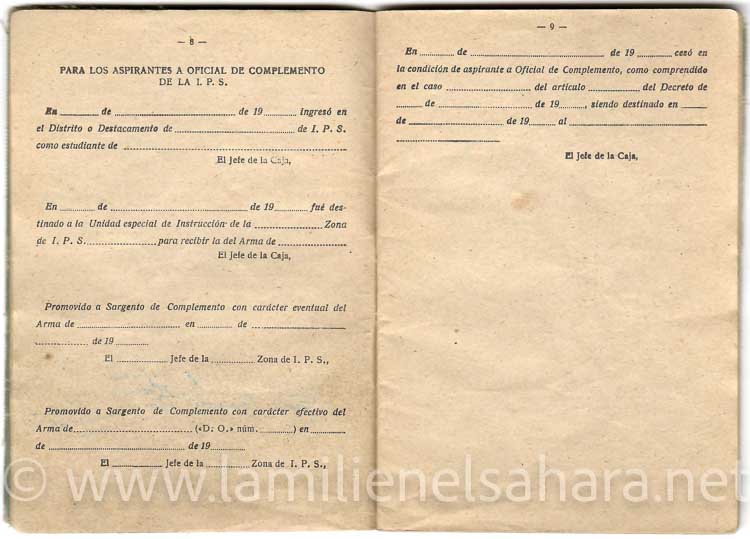 — 8 —
PARA LOS ASPIRANTES A OFICIAL DE COMPLEMENTO
DE LA I. P. S.
En ........ de ............................ de 19 ........ ingresó en
el Distrito o Destacamento de ............................ de I. P. S.
como estudiante de ............................
El Jefe de la Caja,
En ........ de ............................ de 19 ........ fué des-
tinado a la Unidad especial de Instrucción de la ........ Zona
de I. P. S. ................ para recibir la del Arma de ................
El Jefe de la Caja,
Promovido a Sargento de Complemento con carácter eventual del
Arma de ............................ en ........ de ............................
................ de 19 ........
El ............ Jefe de la ............ Zona de I. P. S.,
Promovido a Sargento de Complemento con carácter efectivo del
Arma de ............................ («D. O.» núm. ........) en ........
de ............................ de 19 ........
El ............ Jefe de la ............ Zona de I. P. S.,
— 9 —
En ........ de ............................ de 19 ........ cesó en
la condición de aspirante a Oficial de Complemento, como comprendido
en el caso ................ del artículo ............ del Decreto de
........ de ................ de 19 ........, siendo destinado en ........
de ................ de 19 ........ al ............................
............................
El Jefe de la Caja,
© www.lamilienelsahara.net